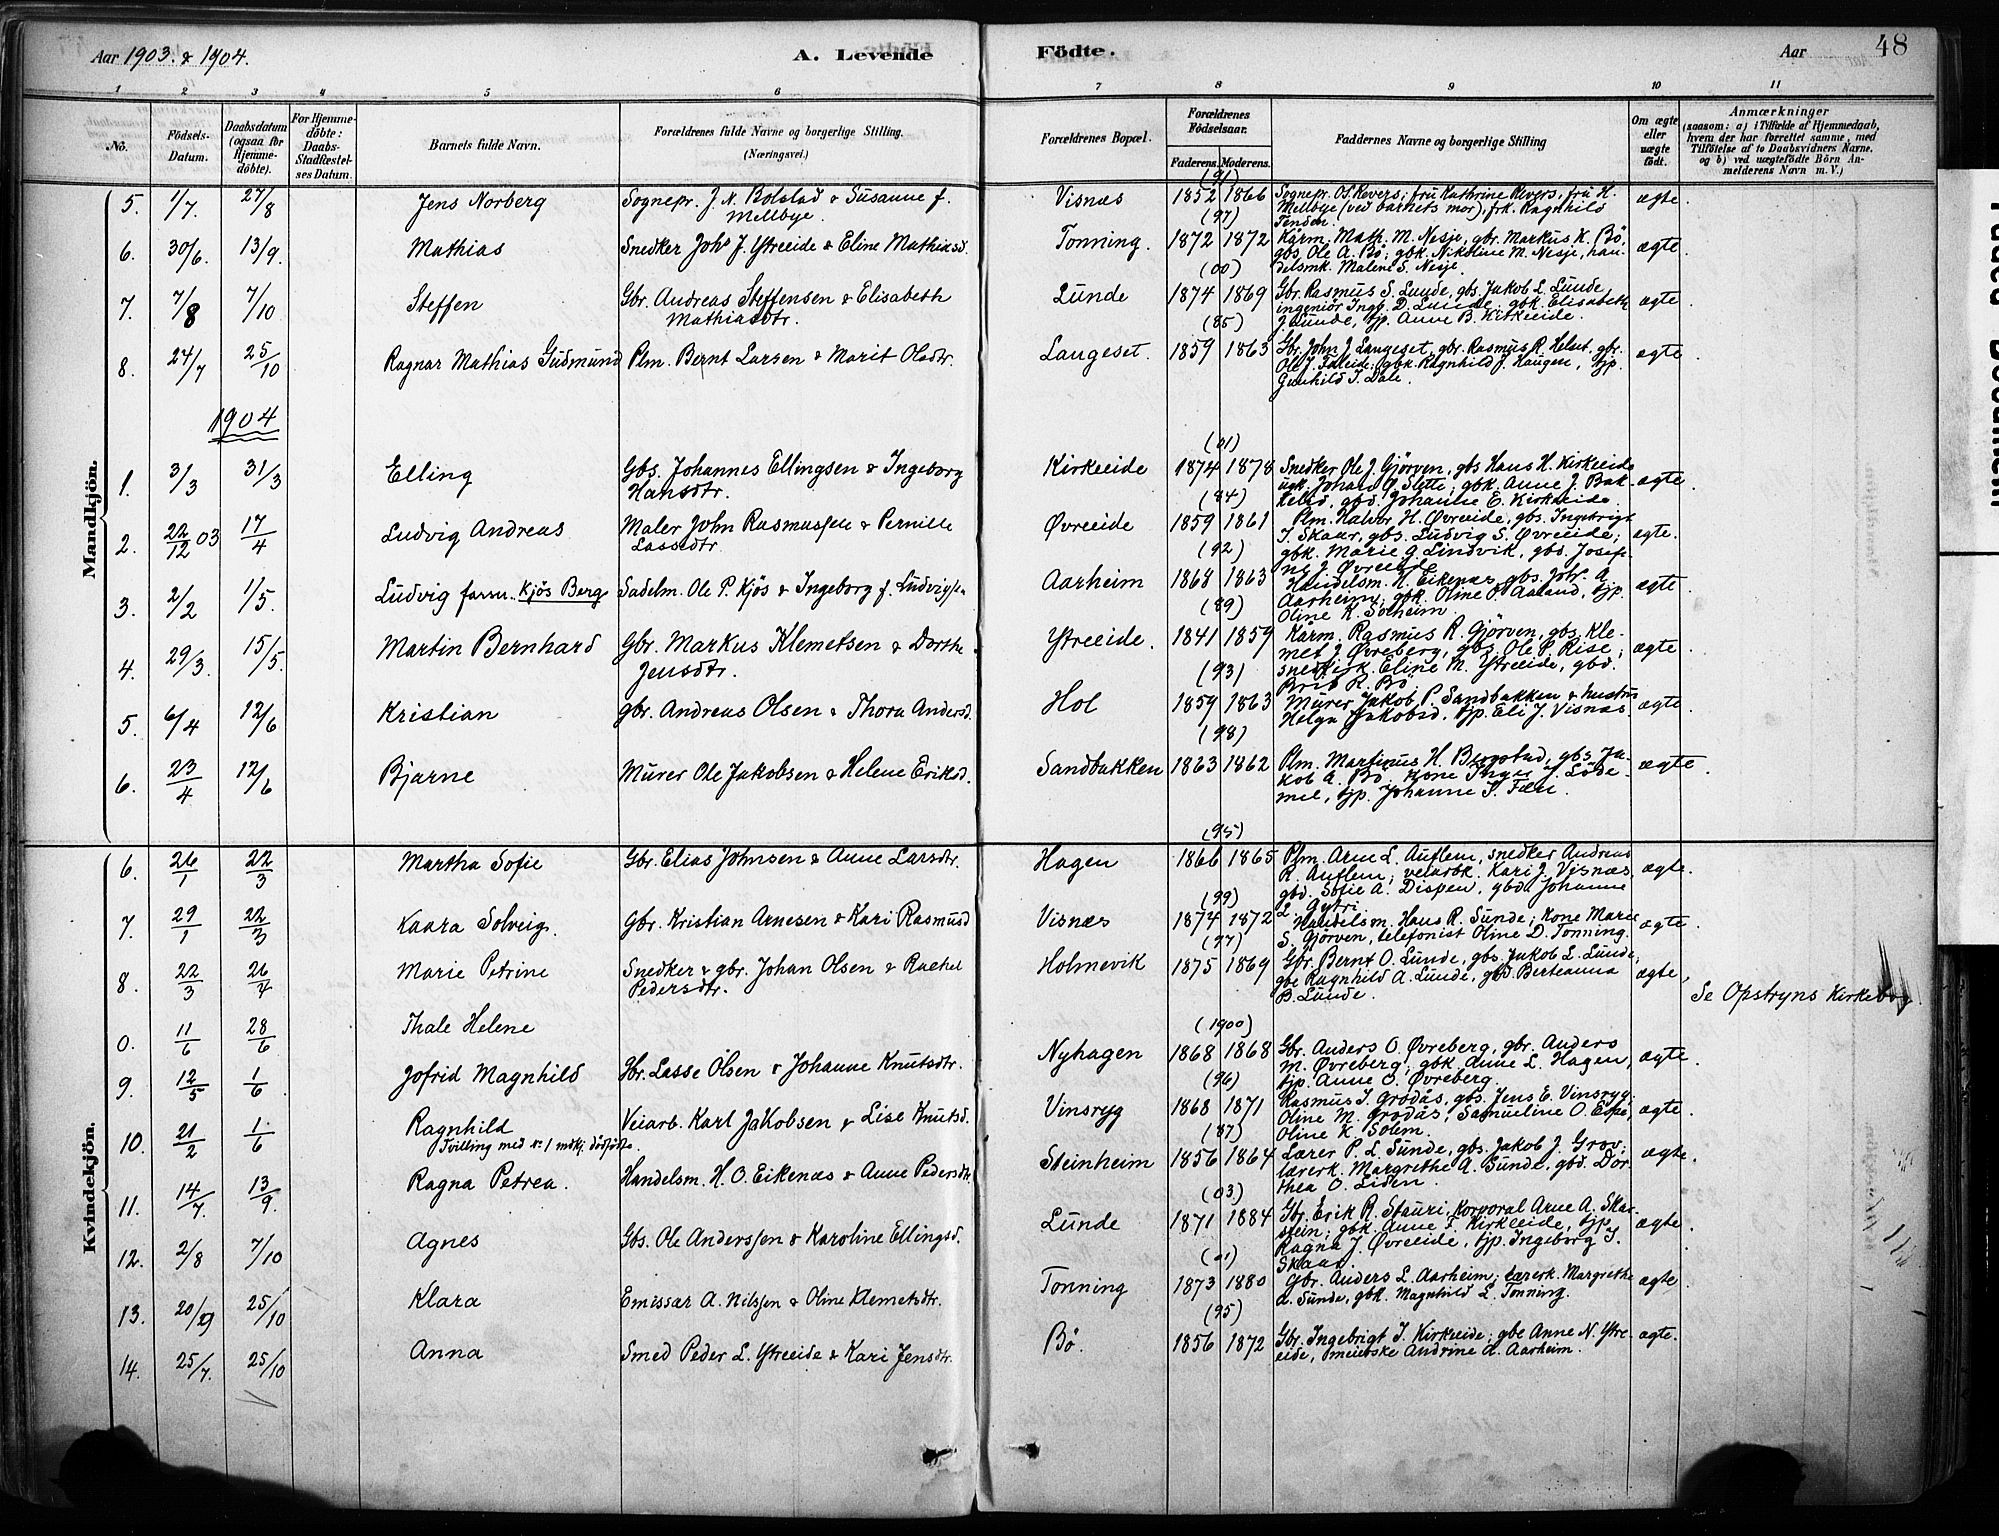 Aar 1903. & 1904.
A. Levende
Födte.
Aar
48
1 2 3 4 5 6 7 8 9 10 11
No.
Födsels-Datum.
Daabsdatum (ogsaa for Hjemme-döbte).
For Hjemme-döbte: Daabs-Stadfæstel-ses Datum.
Barnets fulde Navn.
Forældrenes fulde Navne og borgerlige Stilling.
(Næringsvei.)
Forældrenes Bopæl.
Forældrenes Födselsaar.
Faderens. Moderens.
Faddernes Navne og borgerlige Stilling
Om ægte eller uægte födt.
Anmærkninger
(saasom: a) i Tilfælde af Hjemmedaab, hvem der har forrettet samme, med Tilföielse af to Daabsvidners Navne, og b) ved uægtefödte Börn An-melderens Navn m. V.)
Mandkjön.
5. 1/7. 27/8 Jens Norberg Sognepr. J. N. Bolstad & Susanne f. Mellbye. Visnæs (91) 1852 1866 Sognepr. O. S. Kevers; fru Kathrine Kevers, fru H. Mellbye (ved barnets mor), frk. Ragnhild Jensen. ægte.
6. 30/6. 13/9. Mathias Snedker Johs J. Ytreeide & Eline Mathiasd. Tonning. (97) 1872 1872 Kårm. Math. M. Nesje, gbr. Markus K. Bö, gbs. Ole A. Bö; gbk. Nikoline M. Nesje, han-delsmk. Malene S. Nesje. ægte
7. 7/8 7/10 Steffen Gbr. Andreas Steffensen & Elisabeth Mathiasdtr. Lunde (00) 1874 1869 Gbr. Rasmus S. Lunde, gbs. Jakob L. Lunde, ingeniör Ingf. D. Lunde; gbk. Elisabeth J. Lunde, tjp. Anne B. Kirkeeide. ægte.
8. 24/7 25/10 Ragnar Mathias Gudmund Plm. Bernt Larsen & Marit Olsdtr. Langeset. (85) 1859 1863 Gbr. John J. Langeset, gbr. Rasmus R. Helset, gbr. Ole J. Faleide; gbk. Ragnhild J. Haugen, tjp. Gunhild I. Dale. ægte.
1904
1. 3/3 31/3 Elling Gbs. Johannes Ellingsen & Ingeborg Hansdtr. Kirkeeide (01) 1874 1878 Snedker Ole J. Gjörven, gbs Hans H. Kirkeeide ugk. Johan O. Slette; gbk. Anne J. Bak-kelid, gbd Johanne E. Kirkeeide. ægte.
2. 22/12 03 17/4 Ludvig Andreas Maler John Rasmussen & Pernille Lassedtr. Øvreeide (84) 1859 1861 Plm. Halvor H. Øvreeide, gbs. Ingebrigt I. Skaar, gbs. Ludvig S. Øvreeide; gbk. Marie G. Lindvik, gbd. Josefi-ne J. Øvreeide ægte.
3. 2/2 1/5. Ludvig famn. Kjös Berg Sadelm. Ole P. Kjös & Ingeborg f. Ludvigsen Aarheim (92) 1868 1863 Handelsm. H. Eikenæs, gbs. Joh. A. Aarheim; gbk. Oline O. Aaland, tjp. Oline K. Solheim. ægte.
4. 29/3. 15/5. Martin Bernhard Gbr. Markus Klemetsen & Dorthe Jensdtr. Ytreeide. (89) 1841 1859 Kårm. Rasmus R. Gjörven, gbs. Kle-met J. Øvreberg, gbs. Ole P. Rise; snedkirk. Eline M. Ytreeide, gbd. Brit R. Bö. ægte.
5. 6/4 12/6 Kristian gbr. Andreas Olsen & Thora Andersd. Hol (93) 1859 1863 Murer Jakob P. Sandbakken & hustru Helga Jakobsd, tjp. Eli J. Visnæs. ægte.
6. 23/4 12/6 Bjarne Murer Ole Jakobsen & Helene Eriksd. Sandbakken (98) 1863 1862 Plm. Martinus H. Bergstad, gbs. Ja-kob A. Bö. Kone Inger J. Löde-mel, tjp. Johanne S. Fæn. ægte.
Kvindekjön.
6. 26/1 22/3 Martha Sofie Gbr. Elias Johnsen & Anne Larsdtr. Hagen (95) 1866 1865 Plm. Arne L. Auflem, snedker Andreas R. Auflem; veiarbk. Kari J. Visnæs, gbd. Sofie A. Dispen, gbd. Johanne L. Gytri. ægte.
7. 29/1 22/3 Kaara Solveig. gbr. Kristian Arnesen & Kari Rasmusd Visnæs (99) 1874 1872 Handelsm. Hans R. Sunde; Kone Marie S. Gjörven, telefonist Oline D. Tonning. ægte.
8. 22/3 26/4 Marie Petrine Snedker & gbr. Johan Olsen & Rachel Pedersdtr. Holmevik (97) 1875 1869 Gbr. Bernt O. Lunde, gbs. Jakob L. Lunde; gbe Ragnhild A. Lunde, gbd. Berteanna B. Lunde. ægte,
0. 11/6 28/6 Thale Helene Se Opstryns Kirkebog
9. 12/5 1/6 Jofrid Magnhild Gbr. Lasse Olsen & Johanne Knutsdtr. Nyhagen (1900) 1868 1868 Gbr. Anders O. Øvreberg, gbr. Anders M. Øvreberg; gbk. Anne L. Hagen, tjp. Anne O. Øvreberg. ægte.
10. 21/2 1/6 Ragnhild Tvilling med nr. 1 mdkj. dödfödte. Veiarb. Karl Jakobsen & Lise Knutsd. Vinsryg (96) 1868 1871 Rasmus I. Grodås, gbs. Jens E. Vinsryg; Oline M. Grodås, Samueline O. Espe, Oline K. Solem. ægte.
11. 14/7. 13/9. Ragna Petrea. Handelsm. H. O. Eikenæs & Anne Pedersdtr. Steinheim (87) 1856 1864 Lærer P. L. Sunde, gbs. Jakob J. Grov; lærerk. Margrethe A. Sunde, gbd. Dor-thea O. Liden. ægte.
12. 2/8 7/10 Agnes Gbs. Ole Anderssen & Karoline Ellingsd. Lunde (03) 1871 1884 Gbr. Erik R. Stauri, Korporal Arne A. Skar-stein; gbk. Anne T. Kirkeeide, tjp. Ragna J. Øvreeide, tjp. Ingeborg I. Skaar. ægte.
13. 20/9 25/10 Klara Emissær A. Nilssen & Oline Klemetsdtr. Tonning (01) 1873 1880 Gbr. Anders L. Aarheim; lærerk. Margrethe A. Sunde, gbk. Magnhild L. Tonning. ægte.
14. 25/7. 25/10 Anna Smed Peder L. Ytreeide & Kari Jensdtr. Bö. (95) 1856 1872 Gbr. Ingebrigt I. Kirkeeide; gbe Anne N. Ytre-eide, meierske Andrine A. Aarheim. ægte.